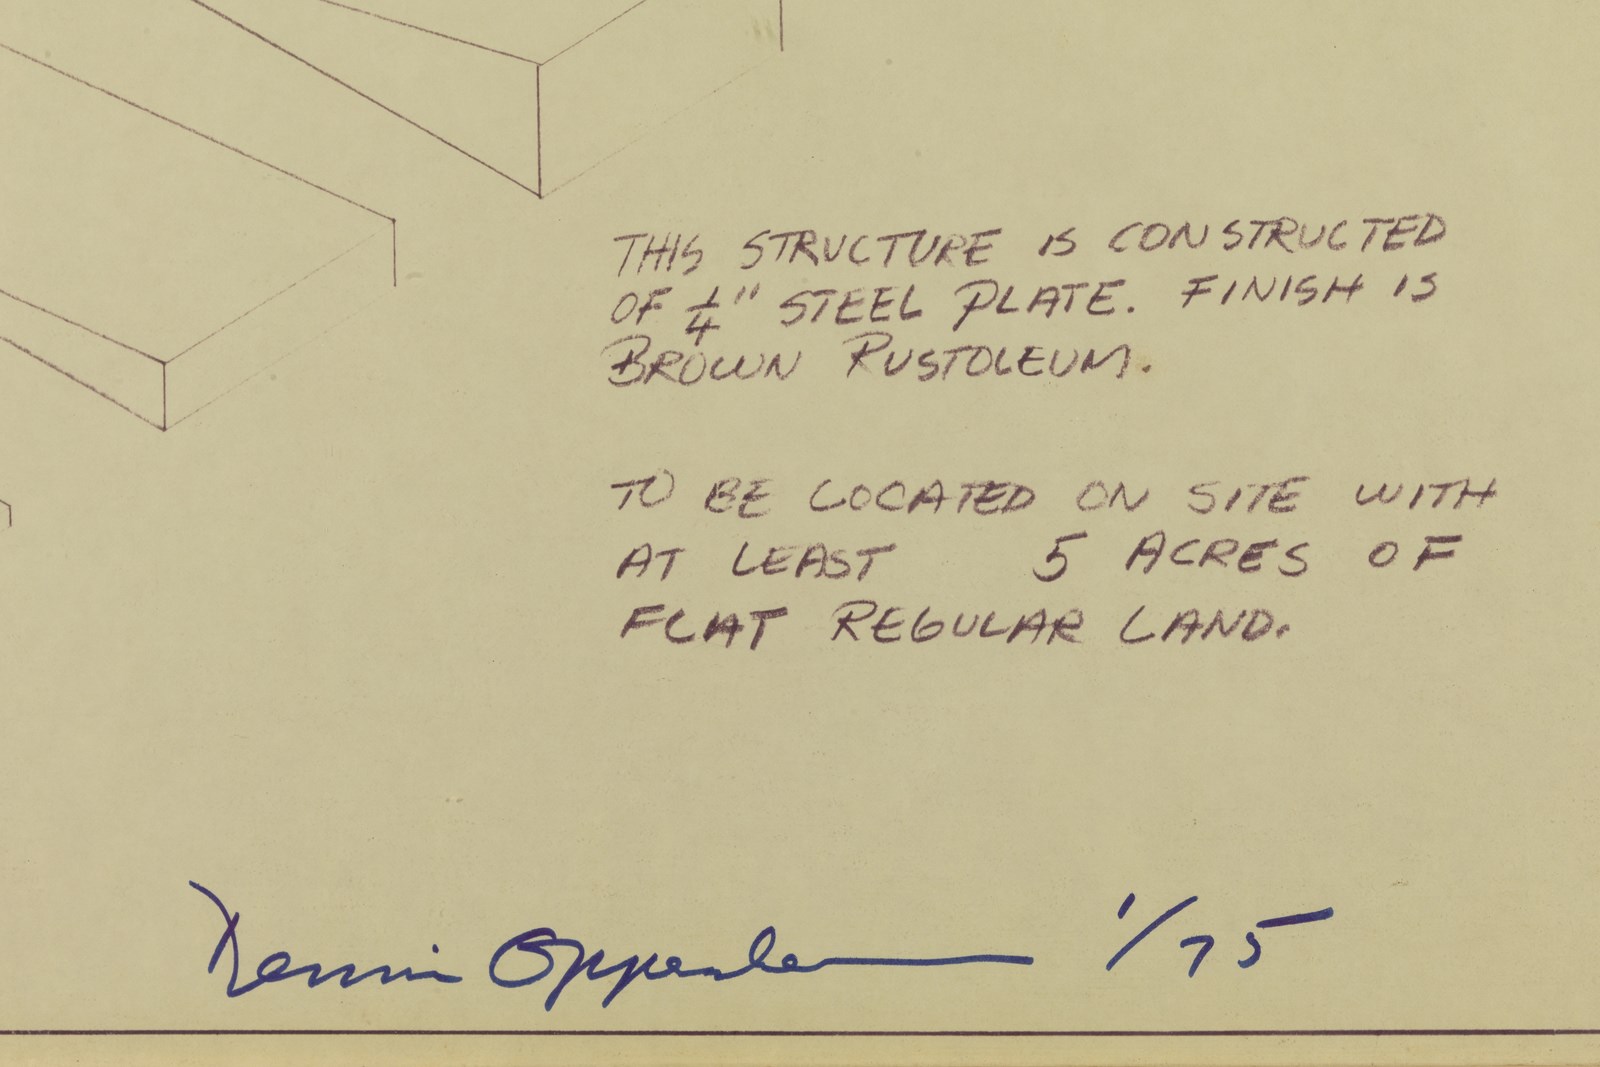 THIS STRUCTURE IS CONSTRUCTED
OF 1/4" STEEL PLATE. FINISH IS
BROWN RUSTOLEUM.
TO BE LOCATED ON SITE WITH
AT LEAST 5 ACRES OF
FLAT REGULAR LAND.
Dennis Oppenheim 1/75